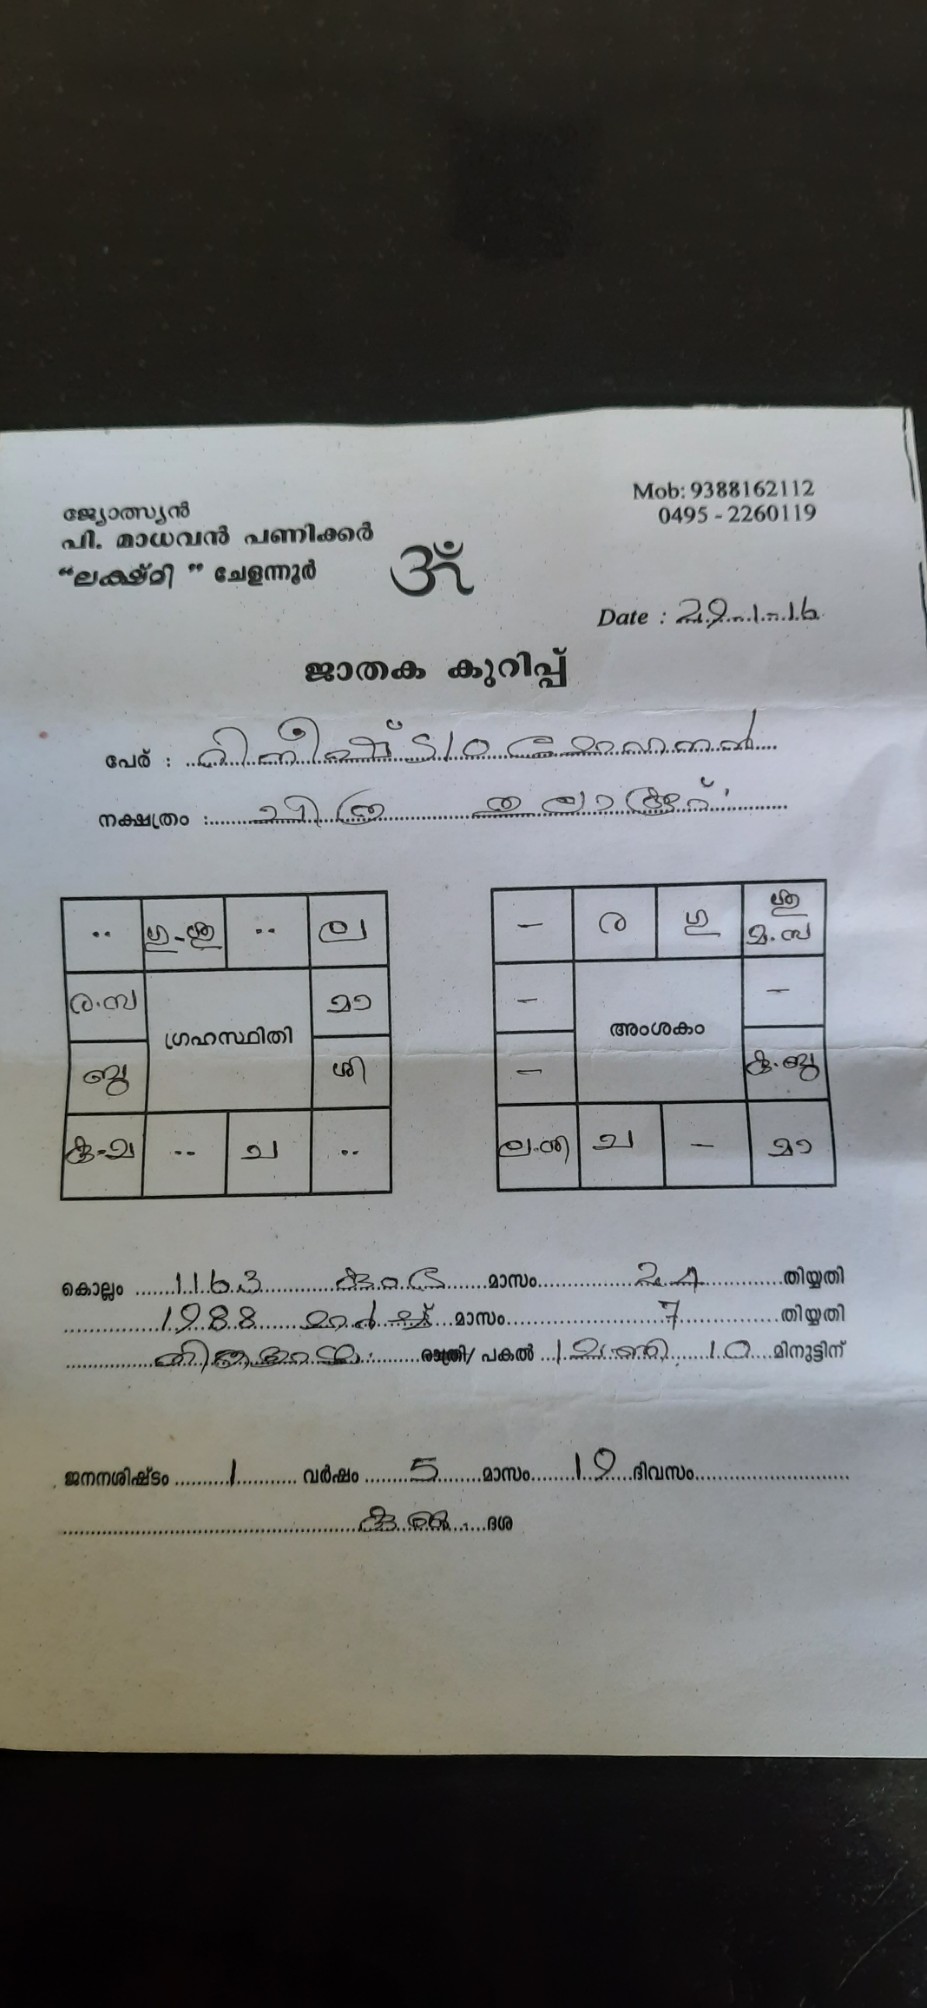 ജ്യോത്സ്യൻ
പി. മാധവൻ പണിക്കർ
"ലക്ഷ്മി" ചേളന്നൂർ
Mob: 9388162112
0495 - 2260119
ॐ
Date : 29.1.16
ജാതക കുറിപ്പ്
പേര് :
നക്ഷത്രം : ചിത്ര
.. ഗു-ശു .. ല
ര.സ മാ
ഗ്രഹസ്ഥിതി
ബു ശി
കു-ച .. ച ..
— ര ഗു ശു മ.സ
— —
അംശകം
— കു.ബു
ച — മാ
കൊല്ലം 1163 കുംഭം മാസം 24 തിയ്യതി
1988 മാർച്ച് മാസം 7 തിയ്യതി
തിങ്കളാഴ്ച രാത്രി/ പകൽ 1 മണി 10 മിനുട്ടിന്
ജനനശിഷ്ടം 1 വർഷം 5 മാസം 19 ദിവസം
ദശ